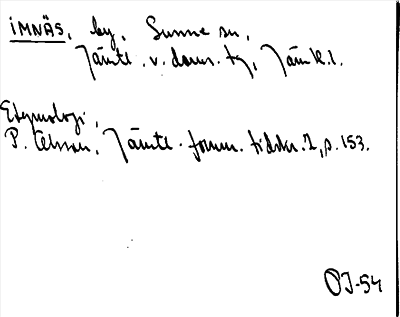 IMNÄS, by, Sunne sn,
Jämtl. v. doms. tg, Jämtl. l.
Etymologi,
P. Olsson, Jämtl. fornm. tidskr. 2, s. 153.
OJ-54